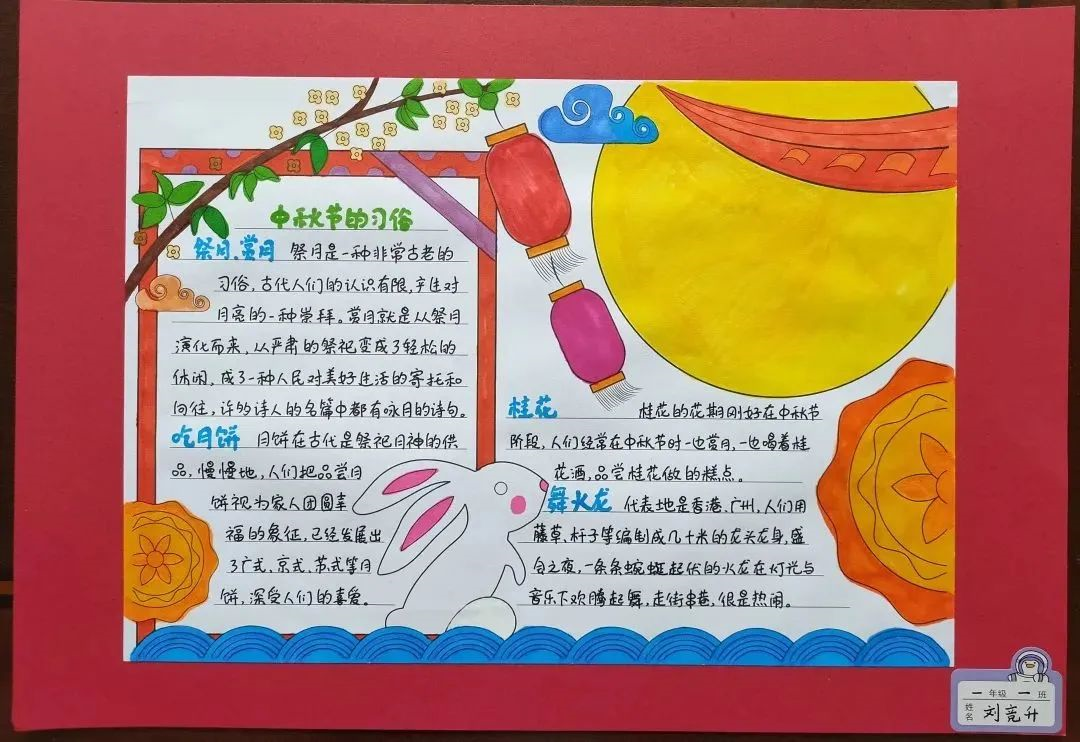 中秋节的习俗
祭月、赏月 祭月是一种非常古老的
习俗,古代人们的认识有限,产生对
月亮的一种崇拜。赏月就是从祭月
演化而来,从严肃的祭祀变成了轻松的
休闲,成了一种人民对美好生活的寄托和
向往,许多诗人的名篇中都有咏月的诗句。
吃月饼 月饼在古代是祭祀月神的供
品,慢慢地,人们把品尝月
饼视为家人团圆幸
福的象征,已经发展出
了广式、京式、苏式等月
饼,深受人们的喜爱。
桂花 桂花的花期刚好在中秋节
阶段,人们经常在中秋节时一边赏月,一边喝着桂
花酒,品尝桂花做的糕点。
舞火龙 代表地是香港、广州,人们用
藤草、杆子等编制成几十米的龙头龙身,盛
会之夜,一条条蜿蜒起伏的火龙在灯光与
音乐下欢腾起舞,走街串巷,很是热闹。
一年级一班
姓名 刘竞升